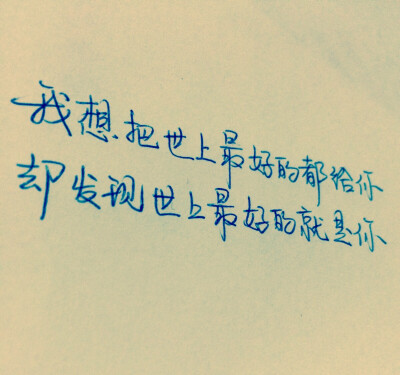 我想把世上最好的都给你
却发现世上最好的就是你